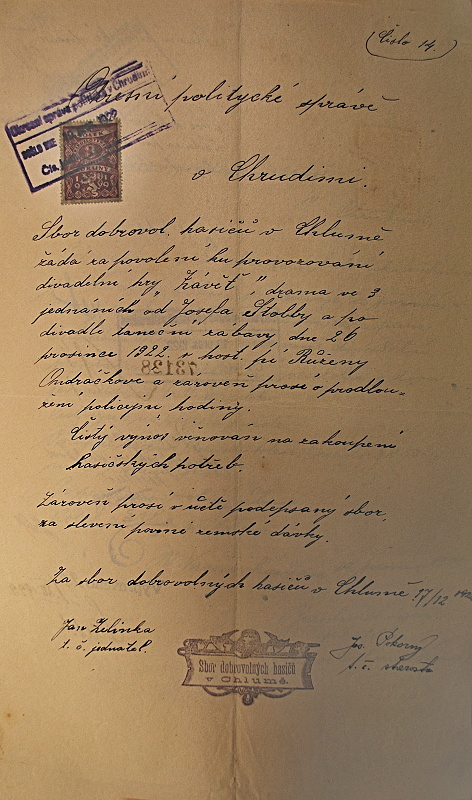 Číslo 14.
Okresní politycké správě
v Chrudimi.
Okresní správa politická v Chrudimi
DOŠLO DNE
Čís.
Sbor dobrovol. hasičů v Chlumě
žádá za povolení ku provozování
divadelní hry „Závěť", drama ve 3
jednáních od Josefa Štolby a po
divadle taneční zábavy, dne 26
prosince 1922, v host. pí Růženy
Ondračkove a zároveň prosí o prodlou-
žení policejní hodiny.
Čistý výnos věnován na zakoupení
hasičských potřeb.
Zároveň prosí v úctě podepsaný sbor,
za slevení povině zemské dávky.
Za sbor dobrovolných hasičů v Chlumě 17/12
Jan Zelinka
t. č. jednatel.
Sbor dobrovolných hasičů
v Chlumě.
Jos. Pokorný
t. č. starosta